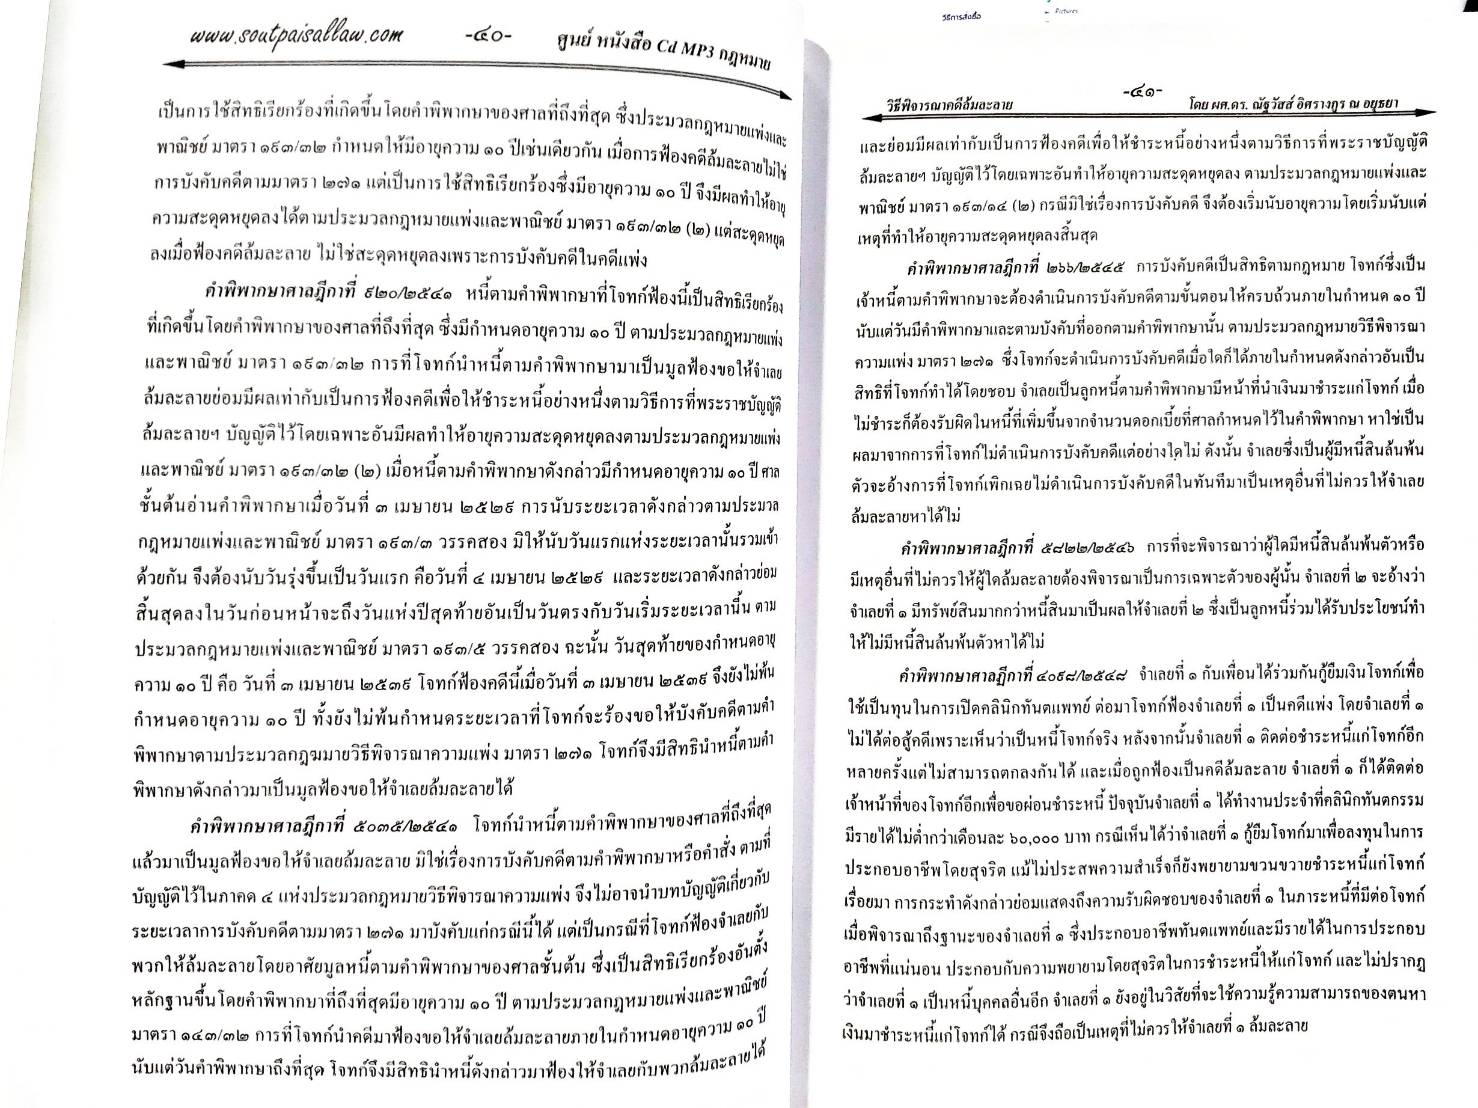 www.soutpaisallaw.com -๔๐- ศูนย์ หนังสือ Cd MP3 กฎหมาย
เป็นการใช้สิทธิเรียกร้องที่เกิดขึ้นโดยคำพิพากษาของศาลที่ถึงที่สุด ซึ่งประมวลกฎหมายแพ่งและ
พาณิชย์ มาตรา ๑๙๓/๓๒ กำหนดให้มีอายุความ ๑๐ ปีเช่นเดียวกัน เมื่อการฟ้องคดีล้มละลายไม่ใช่
การบังคับคดีตามมาตรา ๒๗๑ แต่เป็นการใช้สิทธิเรียกร้องซึ่งมีอายุความ ๑๐ ปี จึงมีผลทำให้อายุ
ความสะดุดหยุดลงได้ตามประมวลกฎหมายแพ่งและพาณิชย์ มาตรา ๑๙๓/๓๒ (๒) แต่สะดุดหยุด
ลงเมื่อฟ้องคดีล้มละลาย ไม่ใช่สะดุดหยุดลงเพราะการบังคับคดีในคดีแพ่ง
คำพิพากษาศาลฎีกาที่ ๙๒๐/๒๕๔๑ หนี้ตามคำพิพากษาที่โจทก์ฟ้องนี้เป็นสิทธิเรียกร้อง
ที่เกิดขึ้นโดยคำพิพากษาของศาลที่ถึงที่สุด ซึ่งมีกำหนดอายุความ ๑๐ ปี ตามประมวลกฎหมายแพ่ง
และพาณิชย์ มาตรา ๑๙๓/๓๒ การที่โจทก์นำหนี้ตามคำพิพากษามาเป็นมูลฟ้องขอให้จำเลย
ล้มละลายย่อมมีผลเท่ากับเป็นการฟ้องคดีเพื่อให้ชำระหนี้อย่างหนึ่งตามวิธีการที่พระราชบัญญัติ
ล้มละลายฯ บัญญัติไว้โดยเฉพาะอันมีผลทำให้อายุความสะดุดหยุดลงตามประมวลกฎหมายแพ่ง
และพาณิชย์ มาตรา ๑๙๓/๓๒ (๒) เมื่อหนี้ตามคำพิพากษาดังกล่าวมีกำหนดอายุความ ๑๐ ปี ศาล
ชั้นต้นอ่านคำพิพากษาเมื่อวันที่ ๓ เมษายน ๒๕๒๙ การนับระยะเวลาดังกล่าวตามประมวล
กฎหมายแพ่งและพาณิชย์ มาตรา ๑๙๓/๓ วรรคสอง มิให้นับวันแรกแห่งระยะเวลานั้นรวมเข้า
ด้วยกัน จึงต้องนับวันรุ่งขึ้นเป็นวันแรก คือวันที่ ๔ เมษายน ๒๕๒๙ และระยะเวลาดังกล่าวย่อม
สิ้นสุดลงในวันก่อนหน้าจะถึงวันแห่งปีสุดท้ายอันเป็นวันตรงกับวันเริ่มระยะเวลานี้น ตาม
ประมวลกฎหมายแพ่งและพาณิชย์ มาตรา ๑๙๓/๕ วรรคสอง ฉะนั้น วันสุดท้ายของกำหนดอายุ
ความ ๑๐ ปี คือ วันที่ ๓ เมษายน ๒๕๓๙ โจทก์ฟ้องคดีนี้เมื่อวันที่ ๓ เมษายน ๒๕๓๙ จึงยังไม่พ้น
กำหนดอายุความ ๑๐ ปี ทั้งยังไม่พ้นกำหนดระยะเวลาที่โจทก์จะร้องขอให้บังคับคดีตามคำ
พิพากษาตามประมวลกฎฆมายวิธีพิจารณาความแพ่ง มาตรา ๒๗๑ โจทก์จึงมีสิทธินำหนี้ตามคำ
พิพากษาดังกล่าวมาเป็นมูลฟ้องขอให้จำเลยล้มละลายได้
คำพิพากษาศาลฎีกาที่ ๕๐๓๕/๒๕๔๑ โจทก์นำหนี้ตามคำพิพากษาของศาลที่ถึงที่สุด
แล้วมาเป็นมูลฟ้องขอให้จำเลยล้มละลาย มิใช่เรื่องการบังคับคดีตามคำพิพากษาหรือคำสั่ง ตามที่
บัญญัติไว้ในภาคด ๔ แห่งประมวลกฎหมายวิธีพิจารณาความแพ่ง จึงไม่อาจนำบทบัญญัติเกี่ยวกับ
ระยะเวลาการบังคับคดีตามมาตรา ๒๗๑ มาบังคับแก่กรณีนี้ได้ แต่เป็นกรณีที่โจทก์ฟ้องจำเลยกับ
พวกให้ล้มละลายโดยอาศัยมูลหนี้ตามคำพิพากษาของศาลชั้นต้น ซึ่งเป็นสิทธิเรียกร้องอันตั้ง
หลักฐานขึ้นโดยคำพิพากบาที่ถึงที่สุดมีอายุความ ๑๐ ปี ตามประมวลกฎหมายแพ่งและพาณิชย์
มาตรา ๑๔๓/๓๒ การที่โจทก์นำคดีมาฟ้องขอให้จำเลยล้มละลายภายในกำหนดอายุความ ๑๐ ปี
นับแต่วันคำพิพากษาถึงที่สุด โจทก์จึงมีสิทธินำหนี้ดังกล่าวมาฟ้องให้จำเลยกับพวกล้มละลายได้
วิธีการสั่งซื้อ
Pictures
วิธีพิจารณาคดีล้มละลาย -๔๑- โดย ผศ.ดร. ณัฐวัสส์ อิศรางกูร ณ อยุธยา
และย่อมมีผลเท่ากับเป็นการฟ้องคดีเพื่อให้ชำระหนี้อย่างหนึ่งตามวิธีการที่พระราชบัญญัติ
ล้มละลายฯ บัญญัติไว้โดยเฉพาะอันทำให้อายุความสะดุดหยุดลง ตามประมวลกฎหมายแพ่งและ
พาณิชย์ มาตรา ๑๙๓/๑๔ (๒) กรณีมิใช่เรื่องการบังคับคดี จึงต้องเริ่มนับอายุความโดยเริ่มนับแต่
เหตุที่ทำให้อายุความสะดุดหยุดลงสิ้นสุด
คำพิพากษาศาลฎีกาที่ ๒๖๖/๒๕๔๕ การบังคับคดีเป็นสิทธิตามกฎหมาย โจทก์ซึ่งเป็น
เจ้าหนี้ตามคำพิพากษาจะต้องดำเนินการบังคับคดีตามขั้นตอนให้ครบถ้วนภายในกำหนด ๑๐ ปี
นับแต่วันมีคำพิพากษาและตามบังคับที่ออกตามคำพิพากษานั้น ตามประมวลกฎหมายวิธีพิจารณา
ความแพ่ง มาตรา ๒๗๑ ซึ่งโจทก์จะดำเนินการบังคับคดีเมื่อใดก็ได้ภายในกำหนดดังกล่าวอันเป็น
สิทธิที่โจทก์ทำได้โดยชอบ จำเลยเป็นลูกหนี้ตามคำพิพากษามีหน้าที่นำเงินมาชำระแก่โจทก์ เมื่อ
ไม่ชำระก็ต้องรับผิดในหนี้ที่เพิ่มขึ้นจากจำนวนดอกเบี้ยที่ศาลกำหนดไว้ในคำพิพากษา หาใช่เป็น
ผลมาจากการที่โจทก์ไม่ดำเนินการบังคับคดีแต่อย่างใดไม่ ดังนั้น จำเลยซึ่งเป็นผู้มีหนี้สินล้นพ้น
ตัวจะอ้างการที่โจทก์เพิกเฉยไม่ดำเนินการบังคับคดีในทันทีมาเป็นเหตุอื่นที่ไม่ควรให้จำเลย
ล้มละลายหาได้ไม่
คำพิพากษาศาลฎีกาที่ ๕๘๒๒/๒๕๔๖ การที่จะพิจารณาว่าผู้ใดมีหนี้สินล้นพ้นตัวหรือ
มีเหตุอื่นที่ไม่ควรให้ผู้ใดล้มละลายต้องพิจารณาเป็นการเฉพาะตัวของผู้นั้น จำเลยที่ ๒ จะอ้างว่า
จำเลยที่ ๑ มีทรัพย์สินมากกว่าหนี้สินมาเป็นผลให้จำเลยที่ ๒ ซึ่งเป็นลูกหนี้ร่วมได้รับประโยชน์ทำ
ให้ไม่มีหนี้สินล้นพ้นตัวหาได้ไม่
คำพิพากษาศาลฎีกาที่ ๔๐๙๘/๒๕๔๘ จำเลยที่ ๑ กับเพื่อนได้ร่วมกันกู้ยืมเงินโจทก์เพื่อ
ใช้เป็นทุนในการเปิดคลินิกทันตแพทย์ ต่อมาโจทก์ฟ้องจำเลยที่ ๑ เป็นคดีแพ่ง โดยจำเลยที่ ๑
ไม่ได้ต่อสู้คดีเพราะเห็นว่าเป็นหนี้โจทก์จริง หลังจากนั้นจำเลยที่ ๑ ติดต่อชำระหนี้แก่โจทก์อีก
หลายครั้งแต่ไม่สามารถตกลงกันได้ และเมื่อถูกฟ้องเป็นคดีล้มละลาย จำเลยที่ ๑ ก็ได้ติดต่อ
เจ้าหน้าที่ของโจทก์อีกเพื่อขอผ่อนชำระหนี้ ปัจจุบันจำเลยที่ ๑ ได้ทำงานประจำที่คลินิกทันตกรรม
มีรายได้ไม่ต่ำกว่าเดือนละ ๖๐,๐๐๐ บาท กรณีเห็นได้ว่าจำเลยที่ ๑ กู้ยืมโจทก์มาเพื่อลงทุนในการ
ประกอบอาชีพโดยสุจริต แม้ไม่ประสพความสำเร็จก็ยังพยายามขวนขวายชำระหนี้แก่โจทก์
เรื่อยมา การกระทำดังกล่าวย่อมแสดงถึงความรับผิดชอบของจำเลยที่ ๑ ในภาระหนี้ที่มีต่อโจทก์
เมื่อพิจารณาถึงฐานะของจำเลยที่ ๑ ซึ่งประกอบอาชีพทันตแพทย์และมีรายได้ในการประกอบ
อาชีพที่แน่นอน ประกอบกับความพยายามโดยสุจริตในการชำระหนี้ให้แก่โจทก์ และไม่ปรากฏ
ว่าจำเลยที่ ๑ เป็นหนี้บุคคลอื่นอีก จำเลยที่ ๑ ยังอยู่ในวิสัยที่จะใช้ความรู้ความสามารถของตนหา
เงินมาชำระหนี้แก่โจทก์ได้ กรณีจึงถือเป็นเหตุที่ไม่ควรให้จำเลยที่ ๑ ล้มละลาย